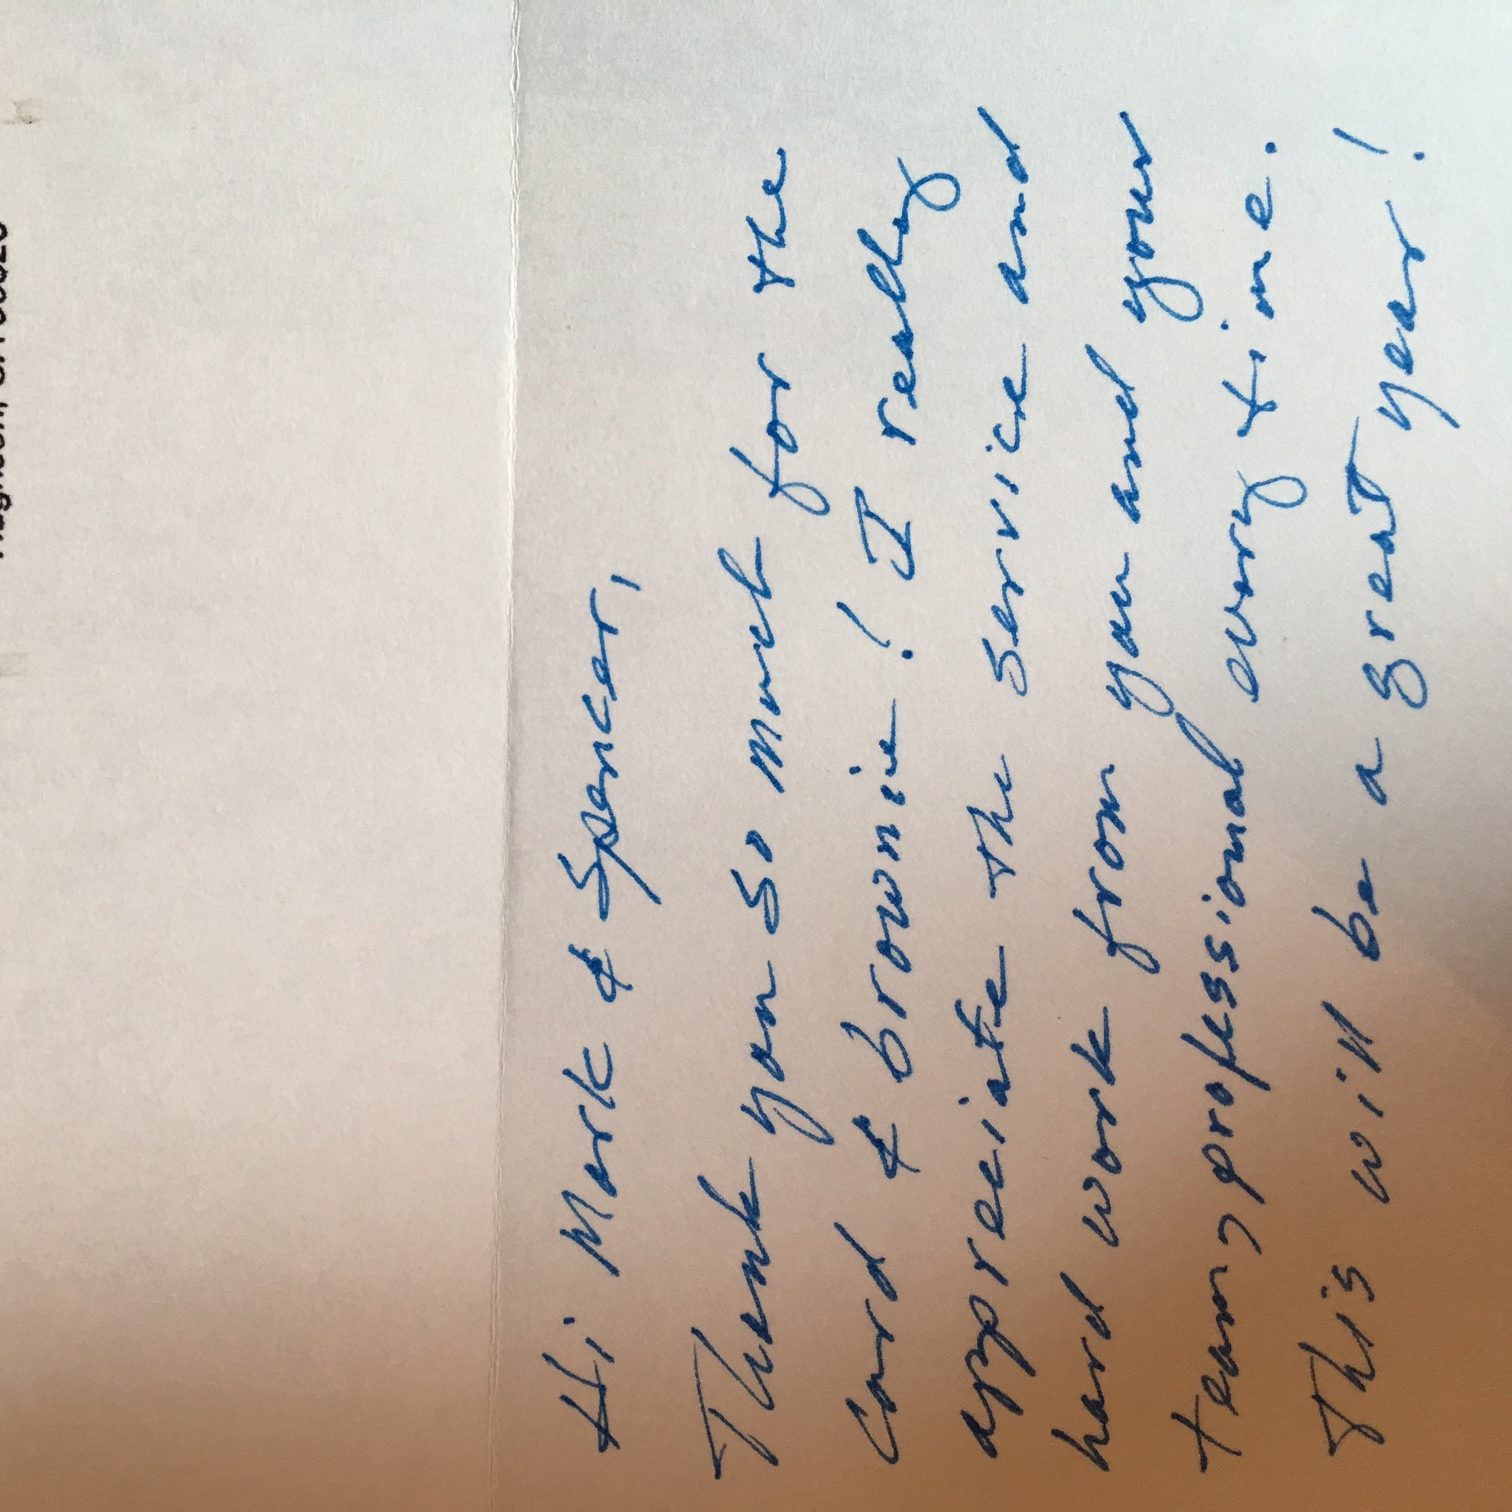 Hi Mark & Spencer,
Thank you so much for the
card & brownie! I really
appreciate the service and
hard work from you and your
team, professional every time.
This will be a great year!